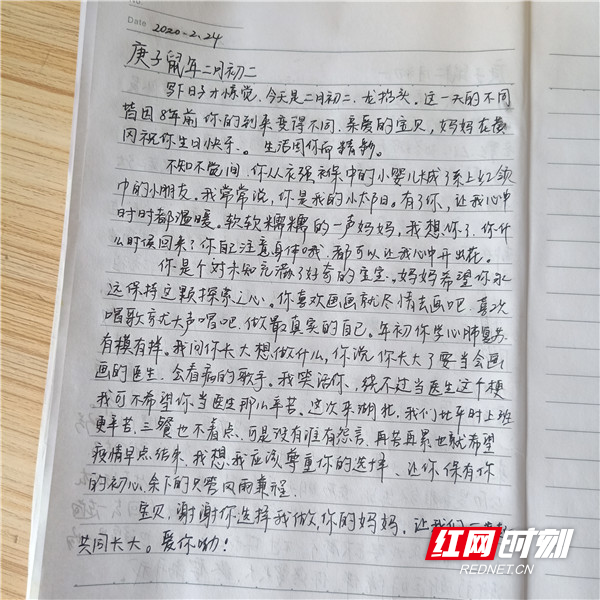 No.
Date 2020-2.24
庚子鼠年二月初二
写下日子才惊觉.今天是二月初二.龙抬头.这一天的不同
皆因8年前你的到来变得不同.亲爱的宝贝,妈妈在黄
冈祝你生日快乐.。生活因你而精彩。
不知不觉间,你从衣强褓中的小婴儿成了系上红领
巾的小朋友。我常常说,你是我的小太阳。有了你,让我心中
时时都温暖。软软糯糯的一声妈妈,我想你了.你什
么时候回来?你自己注意身体哦.都可以让我心中开出花。
你是个对未知充满了好奇的宝宝。妈妈希望你永
远保持这颗探索之心。你喜欢画画就尽情去画吧.喜欢
唱歌就大声唱吧.做最真实的自己。年初你学心肺复苏
有模有样。我问你长大想做什么,你说你长大了要当会画
画的医生.会看病的歌手。我笑话你.绕不过当医生这个梗
我可不希望你当医生那么辛苦。这次来湖北,我们比平时上班
更辛苦.三餐也不着点.可是没有谁有怨言.再苦再累也就希望
疫情早点结束.我想.我应该尊重你的选择、让你保有你
的初心.余下的只管风雨兼程.
宝贝.谢谢你选择我做你的妈妈.让我们一
共同长大。爱你呦!
红网时刻
REDNET.CN